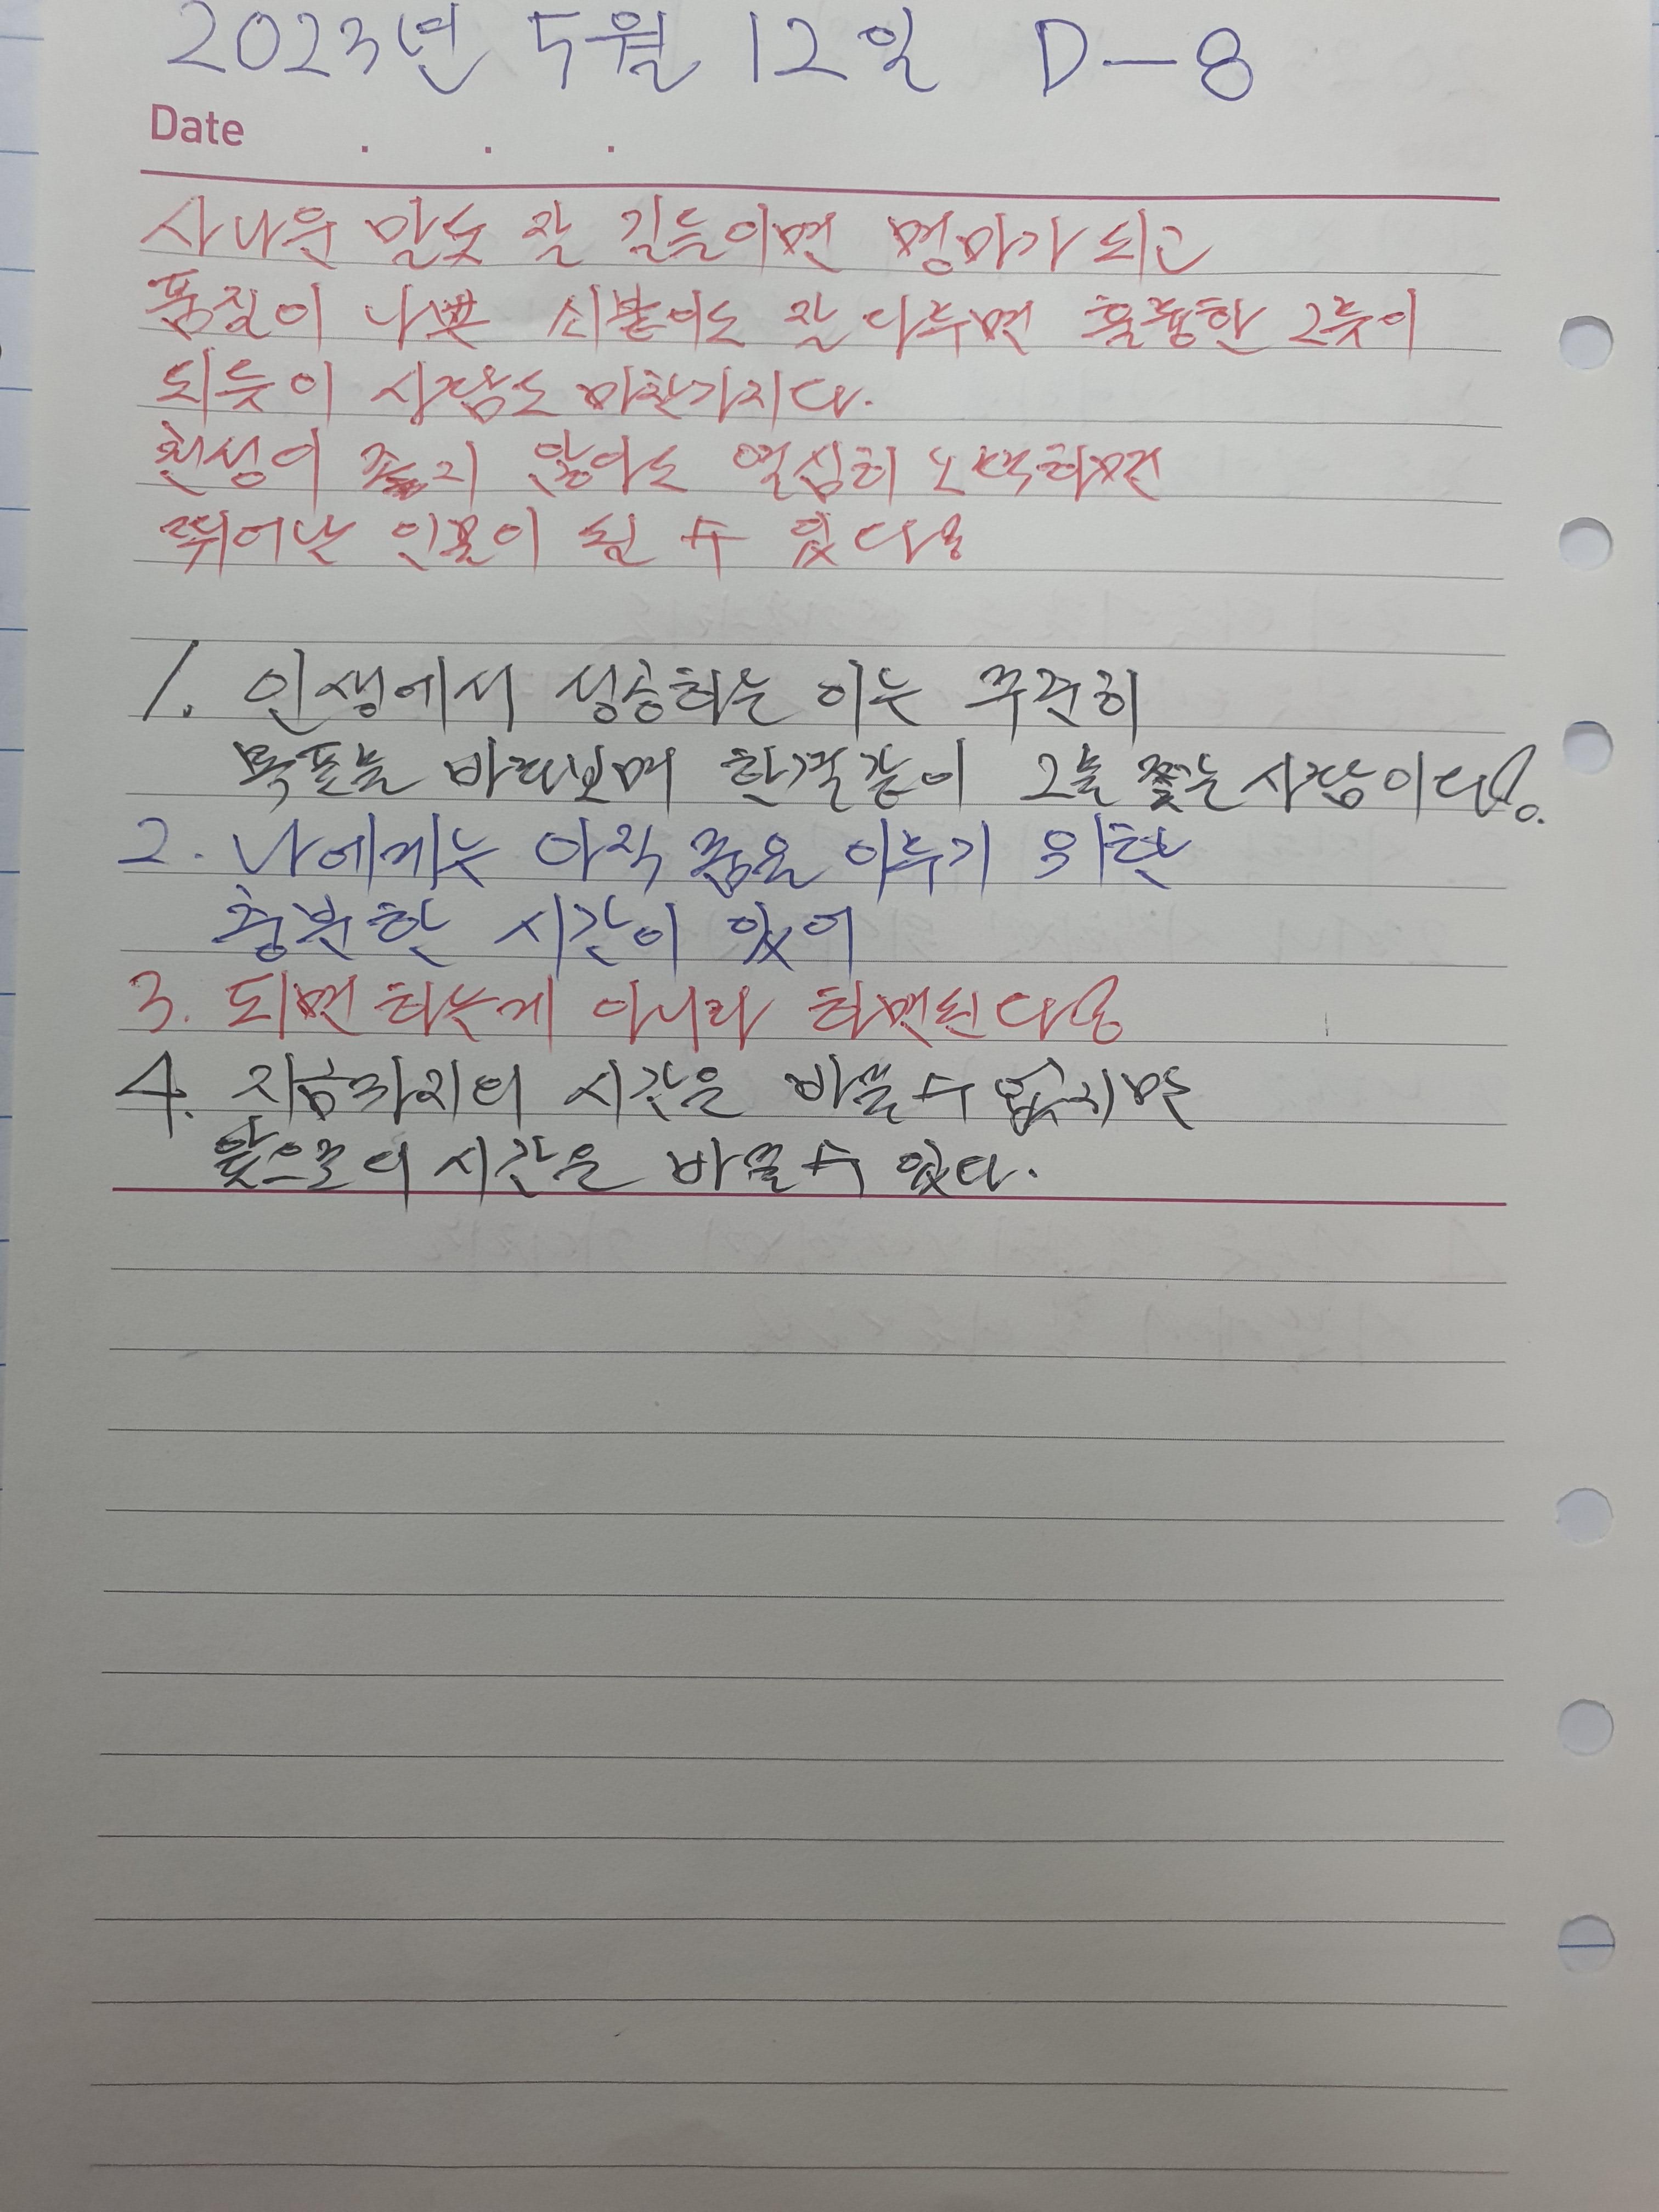 2023년 5월 12일 D-8
Date . . .
사나운 말도 잘 길들이면 명마가 되고
품질이 나쁜 쇠붙이도 잘 다루면 훌륭한 그릇이
되듯이 사람도 마찬가지다.
천성이 좋지 않아도 열심히 노력하면
뛰어난 인물이 될 수 있다!
1. 인생에서 성공하는 이는 꾸준히
목표를 바라보며 한결같이 그를 쫓는 사람이다!.
2. 나에게는 아직 꿈을 이루기 위한
충분한 시간이 있어
3. 되면 하는게 아니라 하면된다!
4. 지금까지의 시간은 바꿀 수 없지만
앞으로의 시간은 바꿀 수 있다.